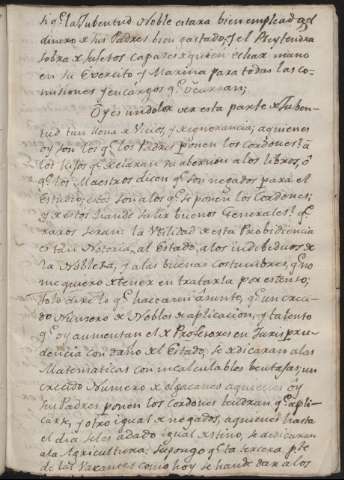 q.e la Jubentud Noble estara bien empleada, el
dinero de sus Padres bien gastado, y el Rey tendra
sobra de sujetos capazes de quien echar mano
en su Exercito y Marina para todas las co-
misiones y encargos q.e ocurran;
Oy es un dolor ver esta parte de Juben-
tud tan llena de Vicios, y de ignorancia; aquienes
oy son los q.e los Padres ponen los cordones? a
los hijos q.e declaran su abersion a los libros, ó
q.e los Maestros dicen q.e son negados para el
Estudio, estos son a los q.e se ponen los Cordones;
y de estos han de salir buenos Generales? q.e
raros seran! la Utilidad de esta Probidencia
es tan Notoria, al Estado, a los indibiduos de
la Nobleza, y a las buenas costumbres, q.e no
me quiero detener en tratarla por estenso;
solo dire lo q.e hace a mi asunto, q.e un creci-
do Numero de Nobles de aplicacion, y talento
q.e oy aumentan el de Profesores en Jurispru-
dencia con daño del Estado, se dedicaran a las
Matematicas con incalculables bentajas; un
crecido Numero de olgazanes aquienes oy
sus Padres ponen los cordones tendran q.e apli-
carse, y otro igual de negados, aquienes hasta
el dia se les a dado igual destino, se dedicaran
a la Agricultura. Supongo q.e la tercera p.te
de las Vacantes como hoy se han de dar a los